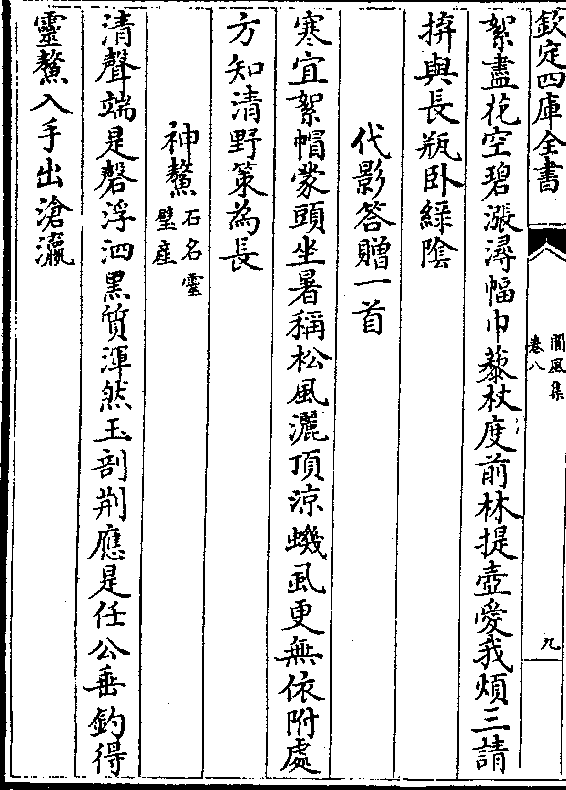 欽定四庫全書
閬風集
卷八
九
絮盡花空碧漲潯幅巾藜杖度前林提壺愛我煩三請
拚與長瓶卧緑隂
代影答贈一首
寒宜絮帽蒙頭坐暑稱松風灑頂涼蟣虱更無依附處
方知清野策為長
神鰲石名靈璧産
清聲端是磬浮泗黒質渾然玉剖荆應是任公垂釣得
靈鰲入手出滄瀛